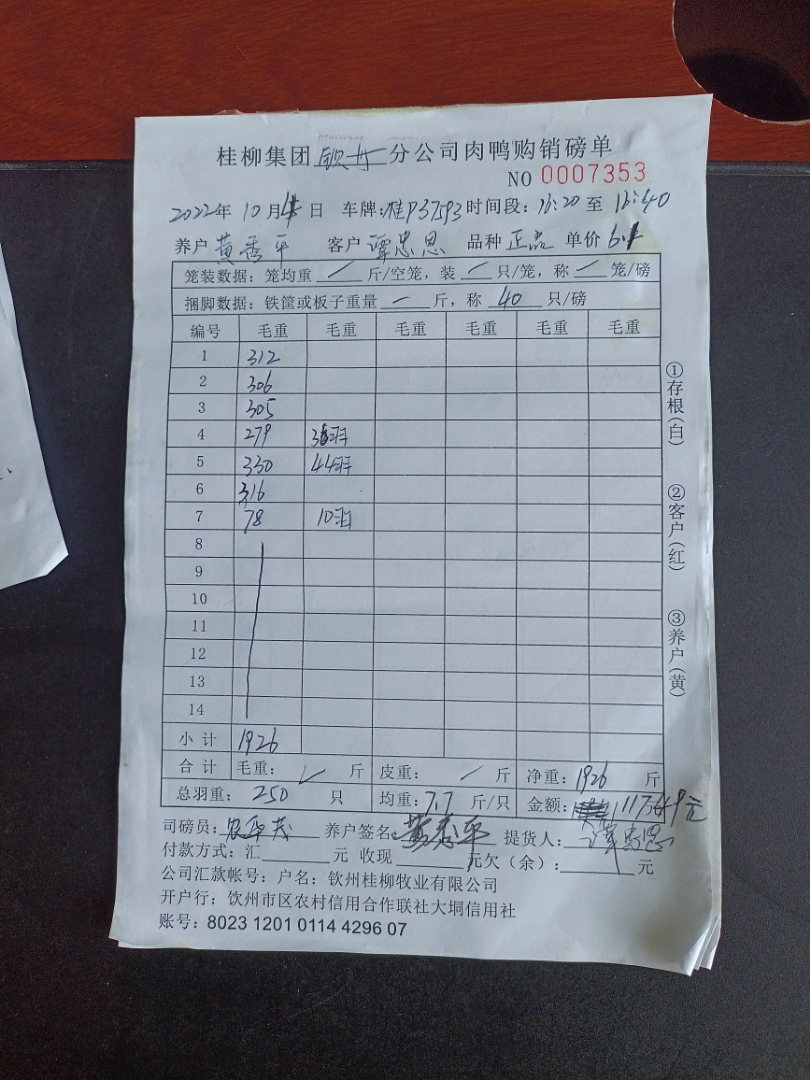 桂柳集团 钦州 分公司肉鸭购销磅单
NO 0007353
2022年 10月4日 车牌:桂P37593 时间段:16:20 至 16:40
养户 黄秀平 客户 谭忠恩 品种 正品 单价 6.1
笼装数据:笼均重 / 斤/空笼,装 / 只/笼,称 / 笼/磅
捆脚数据:铁筐或板子重量 / 斤,称 40 只/磅
编号 毛重 毛重 毛重 毛重 毛重 毛重
1 312
2 306
3 305
4 279 36羽
5 330 44羽
6 316
7 78 10羽
8
9
10
11
12
13
14
小计 1926
合计 毛重: 斤 皮重: / 斤 净重:1926 斤
总羽重: 250 只 均重:7.7 斤/只 金额: 11749元
司磅员: 养户签名:黄秀平 提货人:谭忠恩
付款方式:汇 元 收现 元欠(余): 元
公司汇款帐号:户名:钦州桂柳牧业有限公司
开户行:饮州市区农村信用合作联社大垌信用社
账号:8023 1201 0114 4296 07
①存根(白)
②客户(红)
③养户(黄)